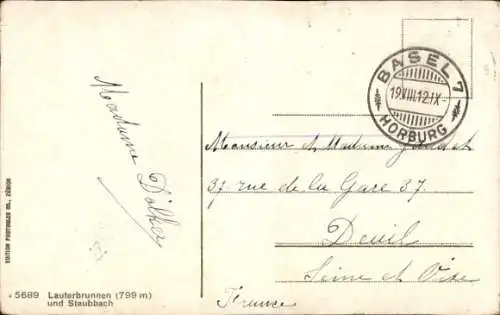 BASEL 7
19.VIII.12.IX-
HORBURG
Madame Dolher
Monsieur et Madame
37. rue de la Gare 37.
Deuil
Seine et Oise
France
EDITION PHOTOGLOB CO., ZÜRICH
5689 Lauterbrunnen (799 m)
und Staubbach